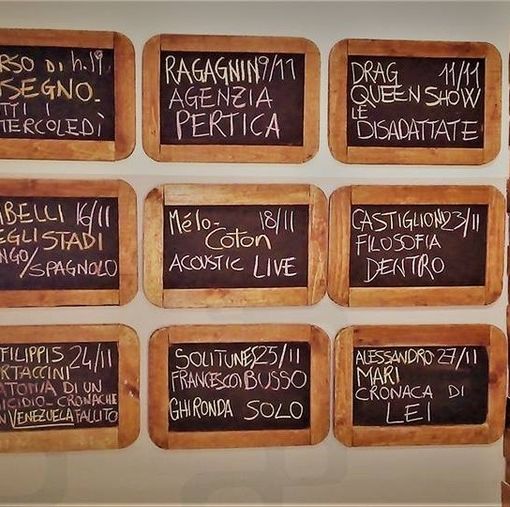 RSO DI h.19
SEGNO-
TTI I
ERCOLEDÌ
RAGAGNIN 9/11
AGENZIA
PERTICA
DRAG 11/11
QUEEN SHOW
LE
DISADATTATE
BELLI 16/11
EGLI STADI
NGO/SPAGNOLO
Mélo- 18/11
COTON
ACOUSTIC LIVE
CASTIGLIONI 23/11
FILOSOFIA
DENTRO
FILIPPIS 24/11
RTACCINI
ATOMIA DI UN
ICIDIO-CRONACHE
VENEZUELA FALLITO
SOLITUNES 25/11
FRANCESCO BUSSO
GHIRONDA SOLO
ALESSANDRO 27/11
MARI
CRONACA DI
LEI